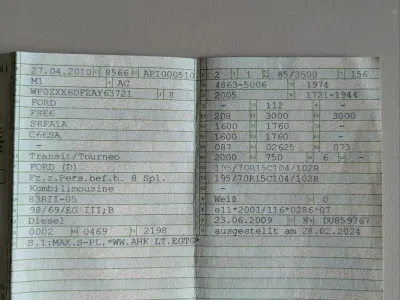 27.04.2010 8566 API000510
M1 AC
WF0ZXXBDFZAY63721 8
FORD
FSE6
SRFA1A
C6ESA
-
Transit/Tourneo
FORD (D)
Fz.z.Pers.bef.b. 8 Spl.
Kombilimousine
83RII-05
98/69/EG III;B
Diesel
0002 0469 2198
S.1:MAX.S-PL.*WW.AHK LT.EGTG*
2 1 85/3500 156
4863-5006 1974
2005 1721-1944
- 112 -
208 3000 3000
1600 1760 -
1600 1760 -
087 02625 073
2000 750 6 -
195/70R15C104/102R
195/70R15C104/102R
-
Weiß 0
e11*2001/116*0286*07
23.06.2009 DU859767
ausgestellt am 28.02.2024